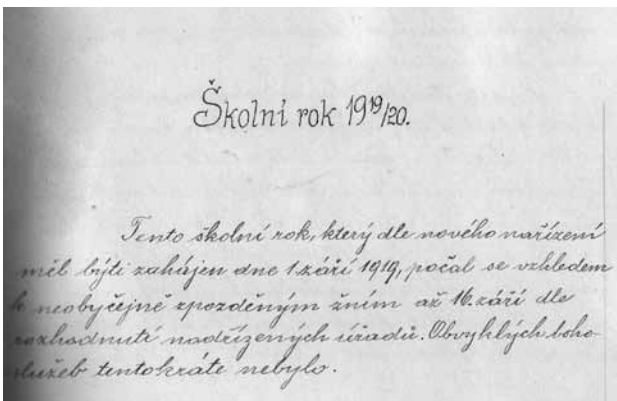 Školní rok 1919/20.
Tento školní rok, který dle nového nařízení
měl býti zahájen dne 1. září 1919, počal se vzhledem
k neobyčejně zpozděným žním až 16. září dle
rozhodnutí nadřízených úřadů. Obvyklých boho-
služeb tentokráte nebylo.